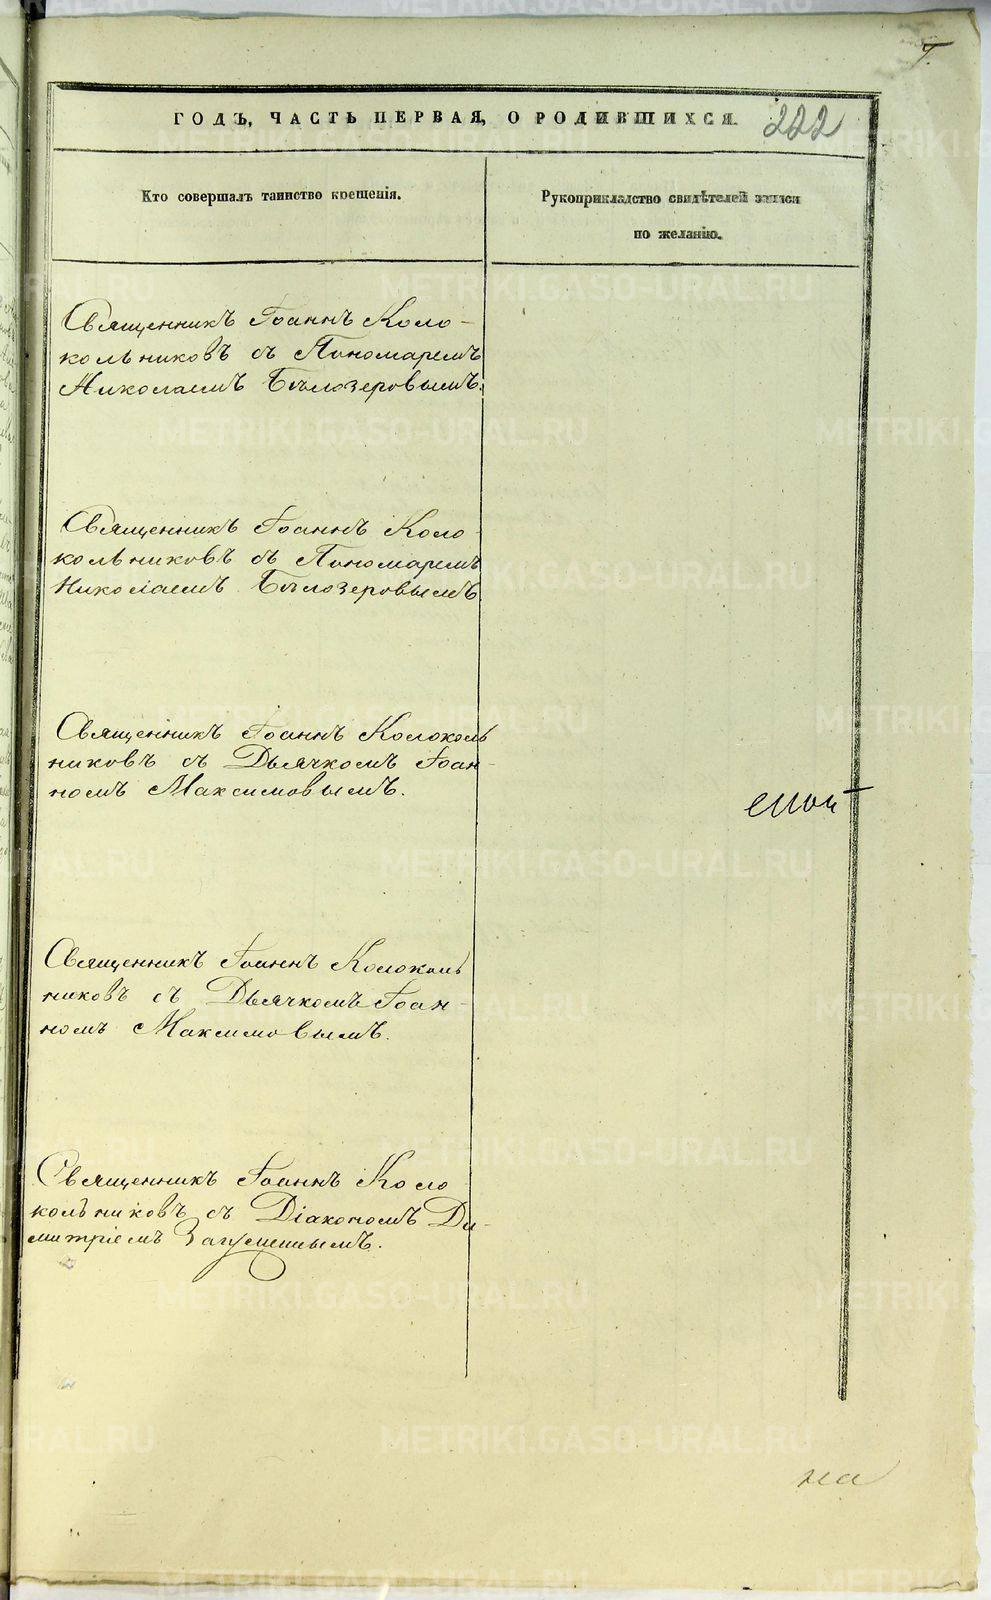 ГОДЪ, ЧАСТЬ ПЕРВАЯ, О РОДИВШИХСЯ.
222
Кто совершалъ таинство крещенія.
Рукоприкладство свидѣтелей записи
по желанію.
Священникъ Іоаннъ Коло-
кольниковъ съ Пономаремъ
Николаемъ Бѣлозеровымъ.
Священникъ Іоаннъ Коло-
кольниковъ съ Пономаремъ
Николаемъ Бѣлозеровымъ
Священникъ Іоаннъ Колоколь
никовъ съ Дьячкомъ Іоан-
номъ Максимовымъ.
Священникъ Іоаннъ Колоколь
никовъ съ Дьячкомъ Іоан-
номъ Максимовымъ.
Священникъ Іоаннъ Коло
кольниковъ съ Діакономъ Ди-
митріемъ Загуменнымъ.
на
METRIKI.GASO-URAL.RU